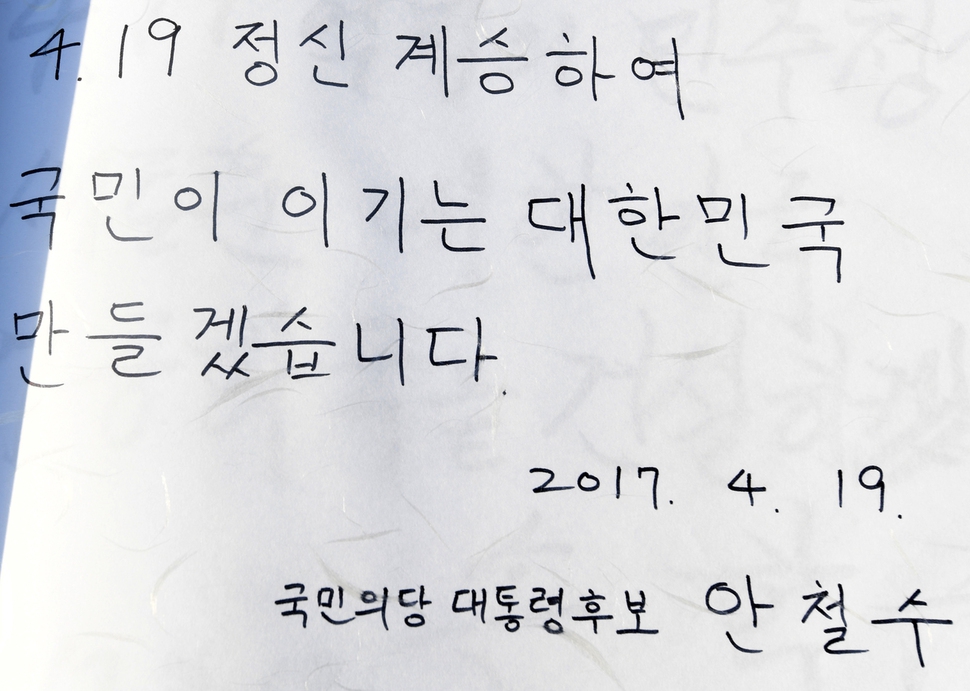 4.19 정신 계승하여
국민이 이기는 대한민국
만들겠습니다.
2017. 4. 19.
국민의당 대통령후보 안철수